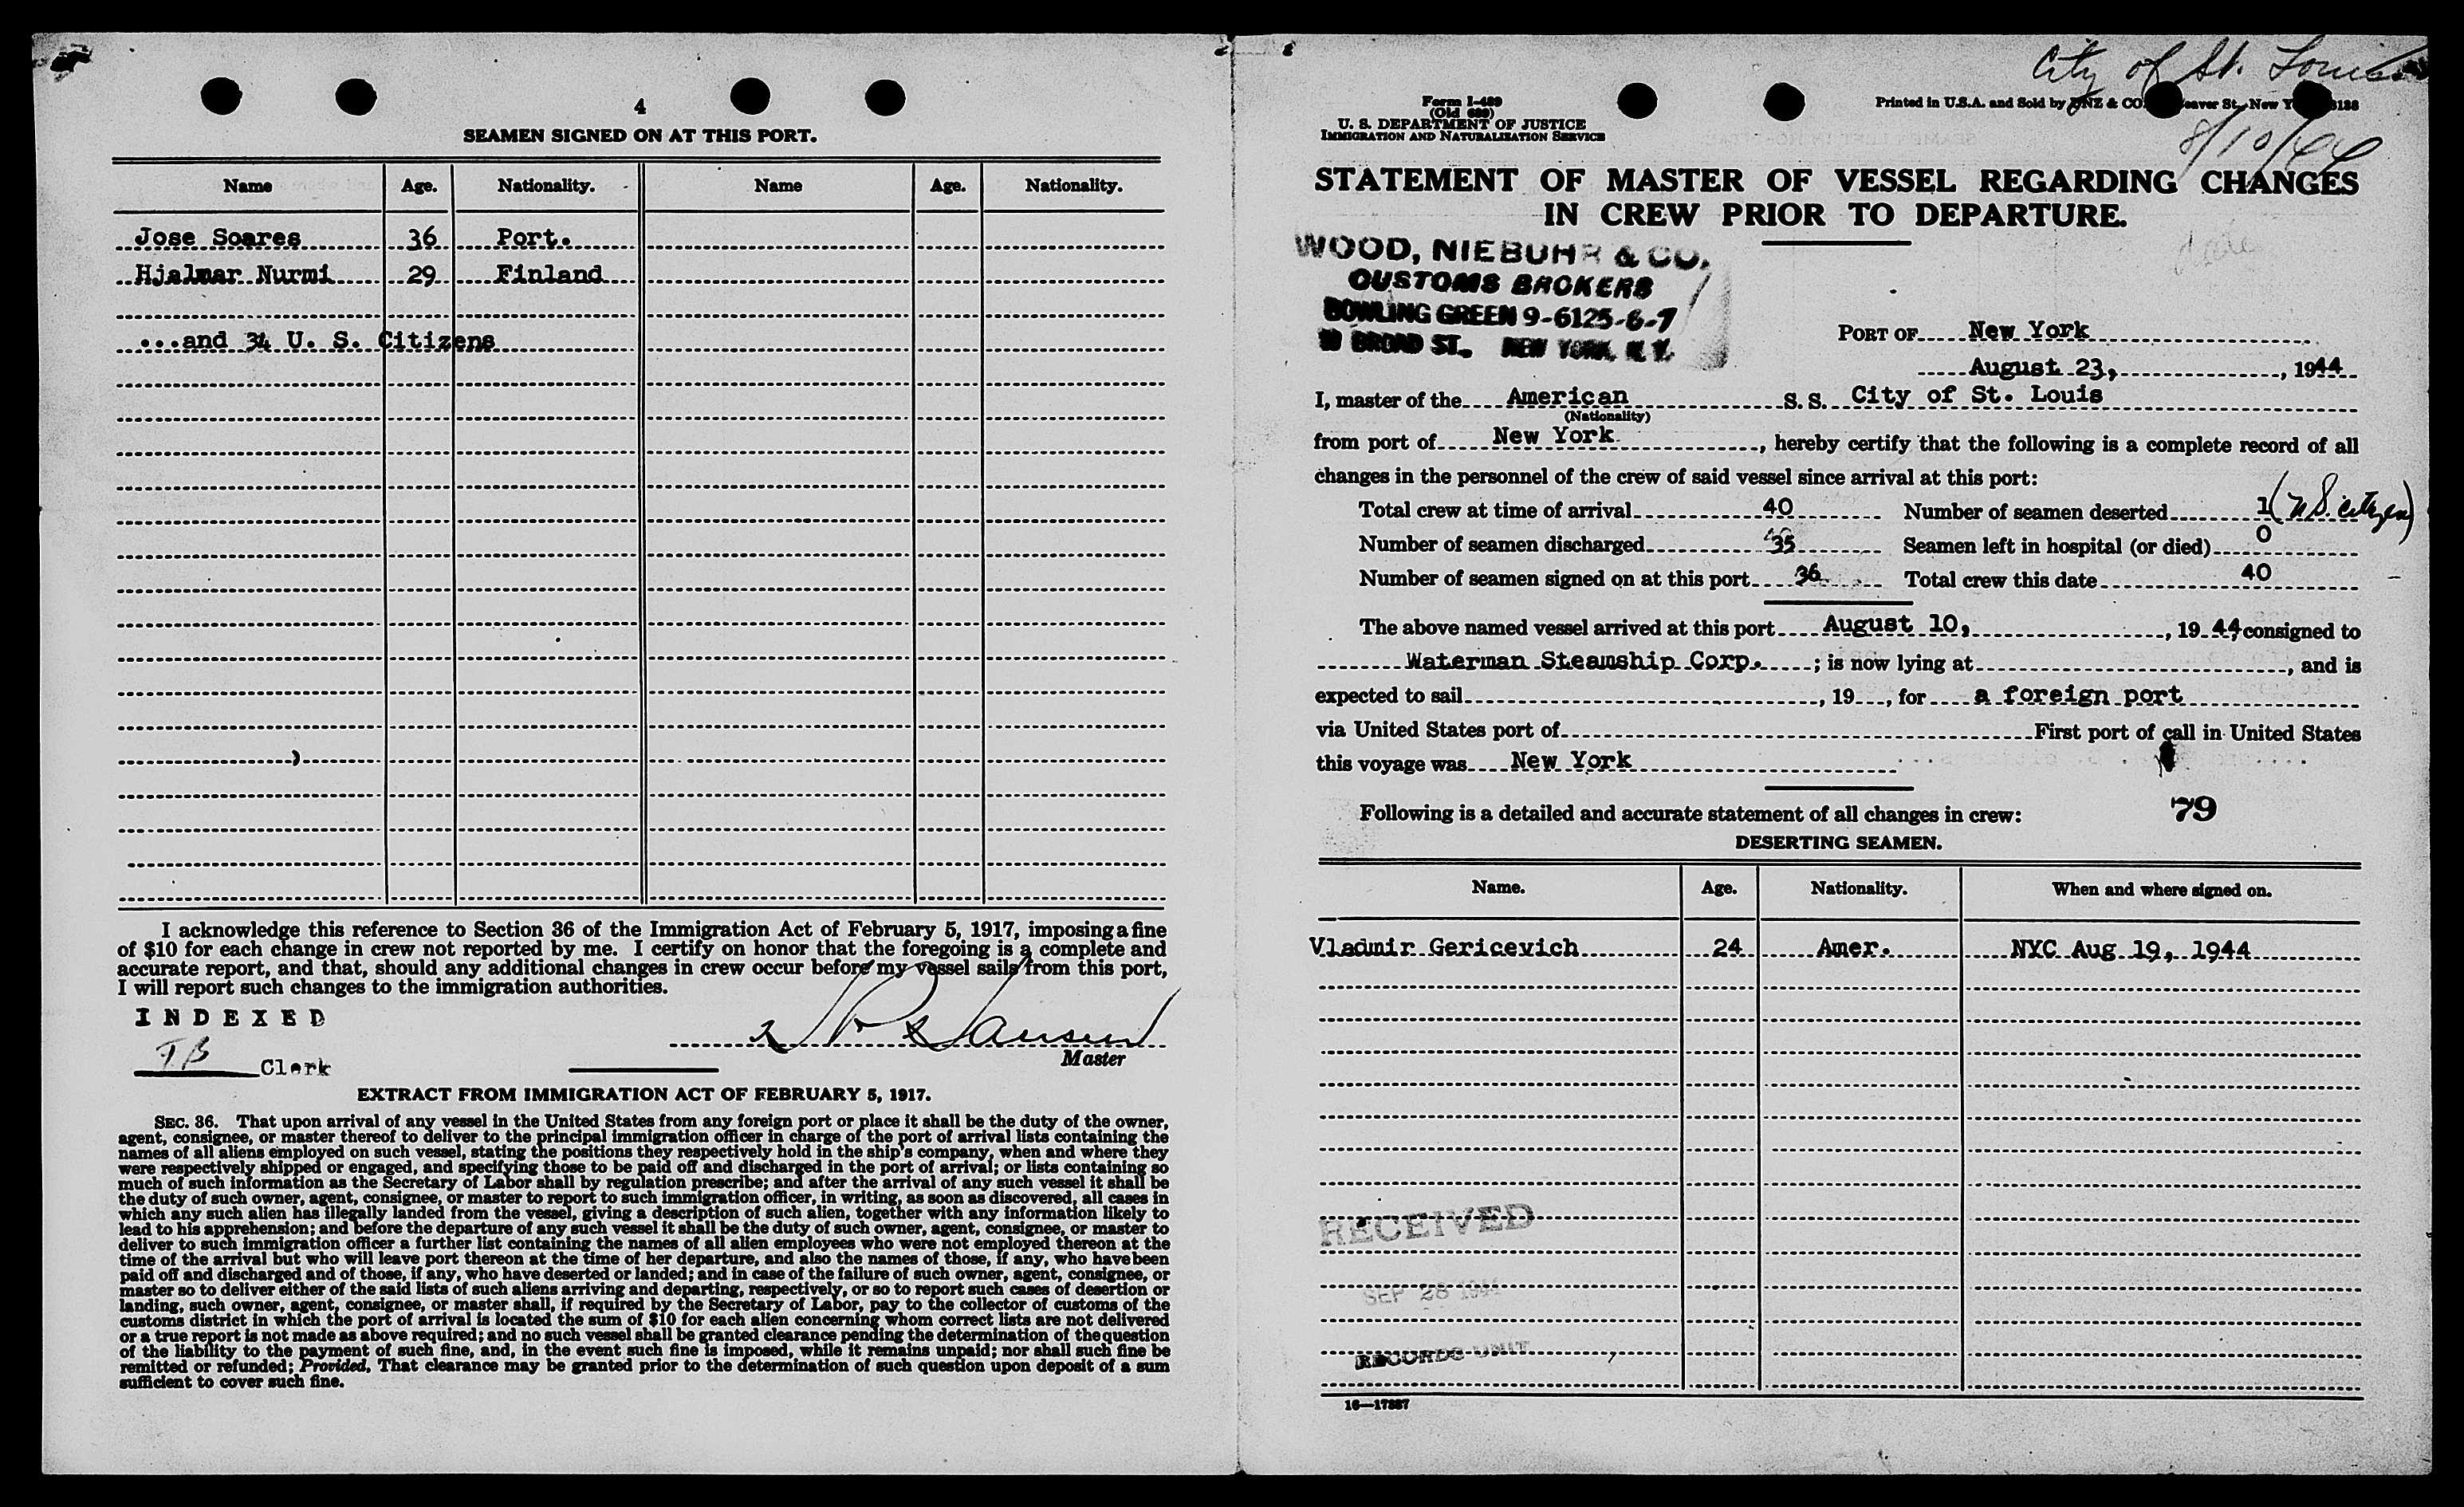 4
SEAMEN SIGNED ON AT THIS PORT.
Name Age. Nationality. Name Age. Nationality.
Jose Soares 36 Port.
Hjalmar Nurmi 29 Finland
...and 34 U. S. Citizens
I acknowledge this reference to Section 36 of the Immigration Act of February 5, 1917, imposing a fine
of $10 for each change in crew not reported by me. I certify on honor that the foregoing is a complete and
accurate report, and that, should any additional changes in crew occur before my vessel sails from this port,
I will report such changes to the immigration authorities.
INDEXED
Master
Clerk
EXTRACT FROM IMMIGRATION ACT OF FEBRUARY 5, 1917.
SEC. 36. That upon arrival of any vessel in the United States from any foreign port or place it shall be the duty of the owner,
agent, consignee, or master thereof to deliver to the principal immigration officer in charge of the port of arrival lists containing the
names of all aliens employed on such vessel, stating the positions they respectively hold in the ship's company, when and where they
were respectively shipped or engaged, and specifying those to be paid off and discharged in the port of arrival; or lists containing so
much of such information as the Secretary of Labor shall by regulation prescribe; and after the arrival of any such vessel it shall be
the duty of such owner, agent, consignee, or master to report to such immigration officer, in writing, as soon as discovered, all cases in
which any such alien has illegally landed from the vessel, giving a description of such alien, together with any information likely to
lead to his apprehension; and before the departure of any such vessel it shall be the duty of such owner, agent, consignee, or master to
deliver to such immigration officer a further list containing the names of all alien employees who were not employed thereon at the
time of the arrival but who will leave port thereon at the time of her departure, and also the names of those, if any, who have been
paid off and discharged and of those, if any, who have deserted or landed; and in case of the failure of such owner, agent, consignee, or
master so to deliver either of the said lists of such aliens arriving and departing, respectively, or so to report such cases of desertion or
landing, such owner, agent, consignee, or master shall, if required by the Secretary of Labor, pay to the collector of customs of the
customs district in which the port of arrival is located the sum of $10 for each alien concerning whom correct lists are not delivered
or a true report is not made as above required; and no such vessel shall be granted clearance pending the determination of the question
of the liability to the payment of such fine, and, in the event such fine is imposed, while it remains unpaid; nor shall such fine be
remitted or refunded; Provided, That clearance may be granted prior to the determination of such question upon deposit of a sum
sufficient to cover such fine.
City of St. Louis
Form I-489
(Old 689)
U. S. DEPARTMENT OF JUSTICE
IMMIGRATION AND NATURALIZATION SERVICE
Printed in U.S.A. and Sold by & CO. St., New
8/10/44
STATEMENT OF MASTER OF VESSEL REGARDING CHANGES
IN CREW PRIOR TO DEPARTURE.
date
WOOD, NIEBUHR & CO.
CUSTOMS BROKERS
BOWLING GREEN 9-6125-6-7
BROAD ST. NEW YORK, N. Y.
PORT OF New York
August 23, , 1944
I, master of the American S. S. City of St. Louis
(Nationality)
from port of New York , hereby certify that the following is a complete record of all
changes in the personnel of the crew of said vessel since arrival at this port:
Total crew at time of arrival 40 Number of seamen deserted 1 (U.S. citizen)
Number of seamen discharged 35 Seamen left in hospital (or died) 0
Number of seamen signed on at this port 36 Total crew this date 40
The above named vessel arrived at this port August 10, , 19 44 consigned to
Waterman Steamship Corp. ; is now lying at , and is
expected to sail , 19 , for a foreign port
via United States port of First port of call in United States
this voyage was New York
Following is a detailed and accurate statement of all changes in crew: 79
DESERTING SEAMEN.
Name. Age. Nationality. When and where signed on.
Vladmir Gericevich 24 Amer. NYC Aug 19, 1944
RECEIVED
SEP 28 1944
RECORDS UNIT
16—17887